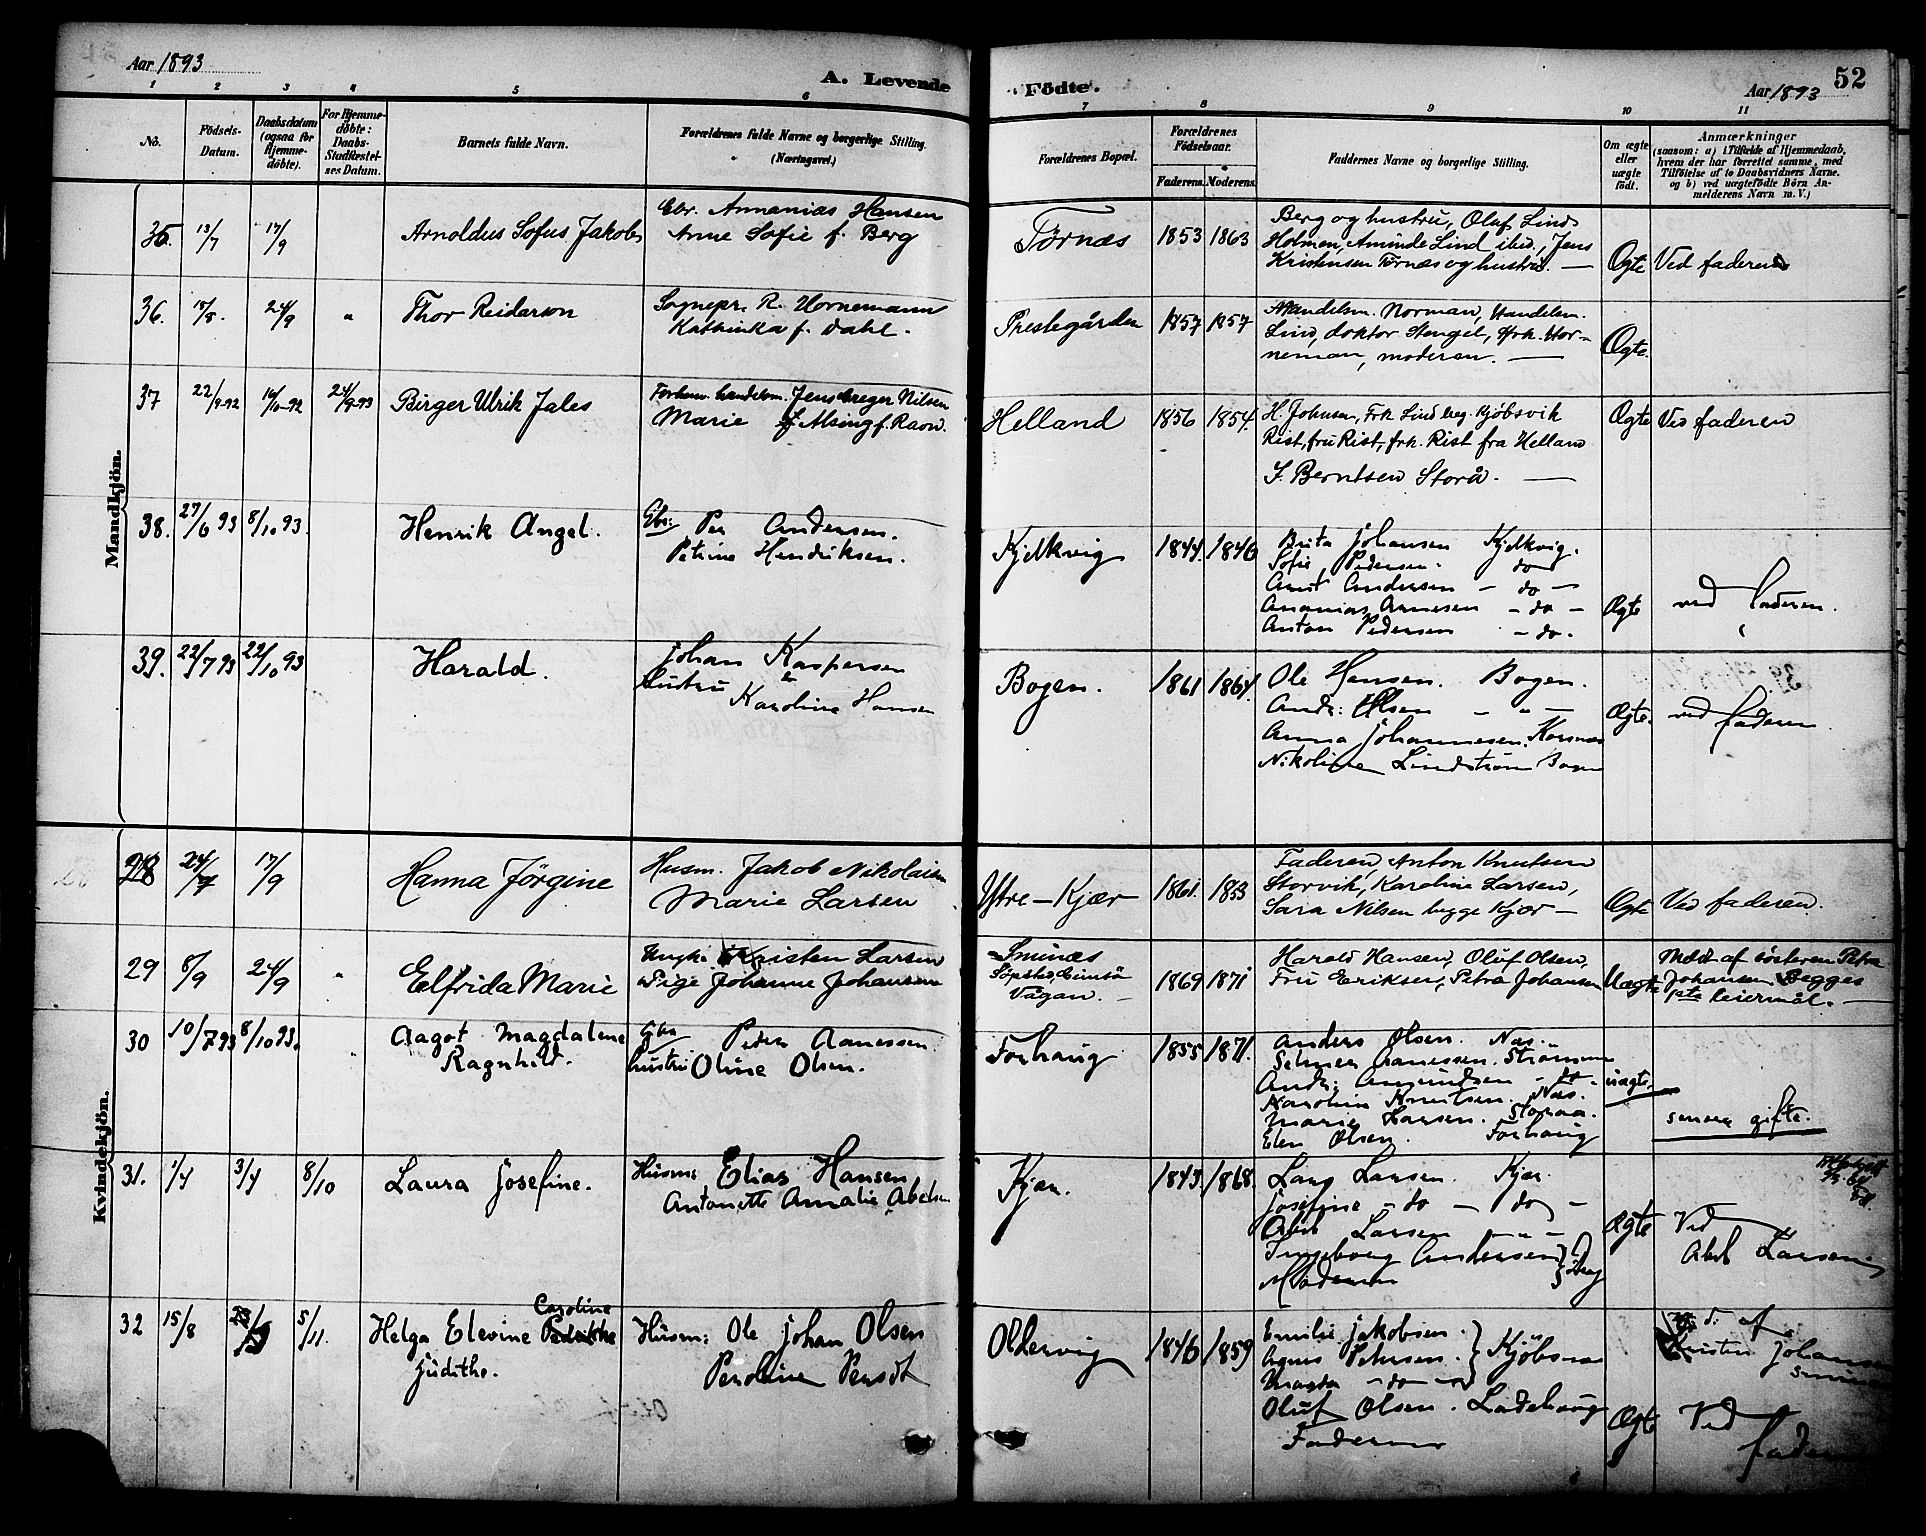 Aar 1893
A. Levende
Födte.
Aar 1893
52
1 2 3 4 5 6 7 8 9 10 11
No.
Födsels-
Datum.
Daabsdatum
(ogsaa for
Hjemme-
döbte).
For Hjemme-
döbte:
Daabs-
Stadfæstel-
ses Datum.
Barnets fulde Navn.
Forældrenes fulde Navne og borgerlige Stilling.
(Næringsvei.)
Forældrenes Bopæl.
Forældrenes
Födselsaar.
Faderens. Moderens.
Faddernes Navne og borgerlige Stilling.
Om ægte
eller
uægte
födt.
Anmærkninger
(saasom: a) i Tilfælde af Hjemmedaab,
hvem der har forrettet samme, med
Tilföielse af to Daabsvidners Navne.
og b) ved uægtefödte Börn An-
melderens Navn m. V.)
Mandkjön.
35. 13/7 17/9 Arnoldus Sofus Jakobs
Gbr. Annanias Hansen
Anne Sofie f. Berg
Tørnæs 1853 1863
Berg og hustru, Oluf Lind
Holmen, Aminde Lind ibid., Jens
Kristensen Tørnæs og hustru. —
Ægte Ved faderen
36. 18/8. 24/9 " Thor Reidarson
Sognepr. R. Hornemann
Kathinka f. Dahl.
Prestegården 1857 1857
Handelsm. Norman, Handelsm.
Lind, doktor Stengel, frk. Hor-
neman, moderen. —
Ægte.
37 22/9-92 16/10-92 24/9-93 Birger Ulrik Jales
Forhenv. handelsm. Jens Greger Nilsen
Marie f. Alsing f. Ravn.
Helland 1856 1854.
H. Johnsen, Frk Lind beg. Kjøbsvik
Rist, fru Rist, frk. Rist fra Helland
J. Berntsen Storå. —
Ægte Ved faderen
38. 27/6 93 8/10 93. Henrik Angel.
Gbr: Per Andersen.
Petrine Hendriksen.
Kjelkvig 1844. 1846
Brita Johansen Kjelkvig.
Sofie Pedersen. do
Arnt Andersen - do -
Ananias Arnesen - do -
Anton Pedersen - do.
Ægte ved faderen.
39. 22/7 93 22/10 93 Harald.
Johan Kaspersen
&
hustru Karoline Hansen
Bogen. 1861 1864.
Ole Hansen. Bogen.
Andr: Olsen - " -
Anna Johannesen. Korsnæs
Nikoline Lindstrøm Bogen
Ægte. ved faderen
Kvindekjön.
28 24/7 17/9 Hanna Jørgine
Husm. Jakob Nikolaisen
Marie Larsen
Ytre - Kjær 1861. 1853
Faderen, Anton Knutsen
Storvik, Karoline Larsen,
Sara Nilsen begge Kjær —
Ægte Ved faderen.
29 8/9 24/9 " Elfrida Marie
Ungk. Kristen Larsen
Pige Johanne Johansen
Sminæs
Vågan. 1869 1871
Harald Hansen, Oluf Olsen,
Fru Eriksen, Petra Johansen
Uægte Meld. af søsteren Petra
Johansen. Begges
1ste leiermål. —
30 10/7 93 8/10 93. Aagot Magdalene
Ragnhild.
Gbr Peder Aanessen
hustru Oline Olsen.
Forhaug 1855 1871.
Anders Olsen. Næs.
Selmer Aanessen. Strømmen
Andr: Amundsen - do -
Karoline Knutsen. Næs.
Marie Larsen. Storaa.
Elen Olsen. Forhaug
uægte. senere gifte.
31. 1/4 3/4 8/10 Laura Josefine.
Husm: Elias Hansen
Antonette Amalie Abelsen
Kjær. 1843. 1868.
Lars Larsen. Kjær.
Josefine - do - do -
Abel Larsen - " -
Ingeborg Andersen
Moderen
Ægte Ved
Abel Larsen
32 15/8 5/11. Helga Elevine Caroline
Judithe.
Husm: Ole Johan Olsen
Oldervig 1846 1859
Emilie Jakobsen.
Agnes Petersen. Kjøbsnæs
Magda - do -
Oluf Olsen. Ladehaug
Faderen
Ægte Ved
faderen